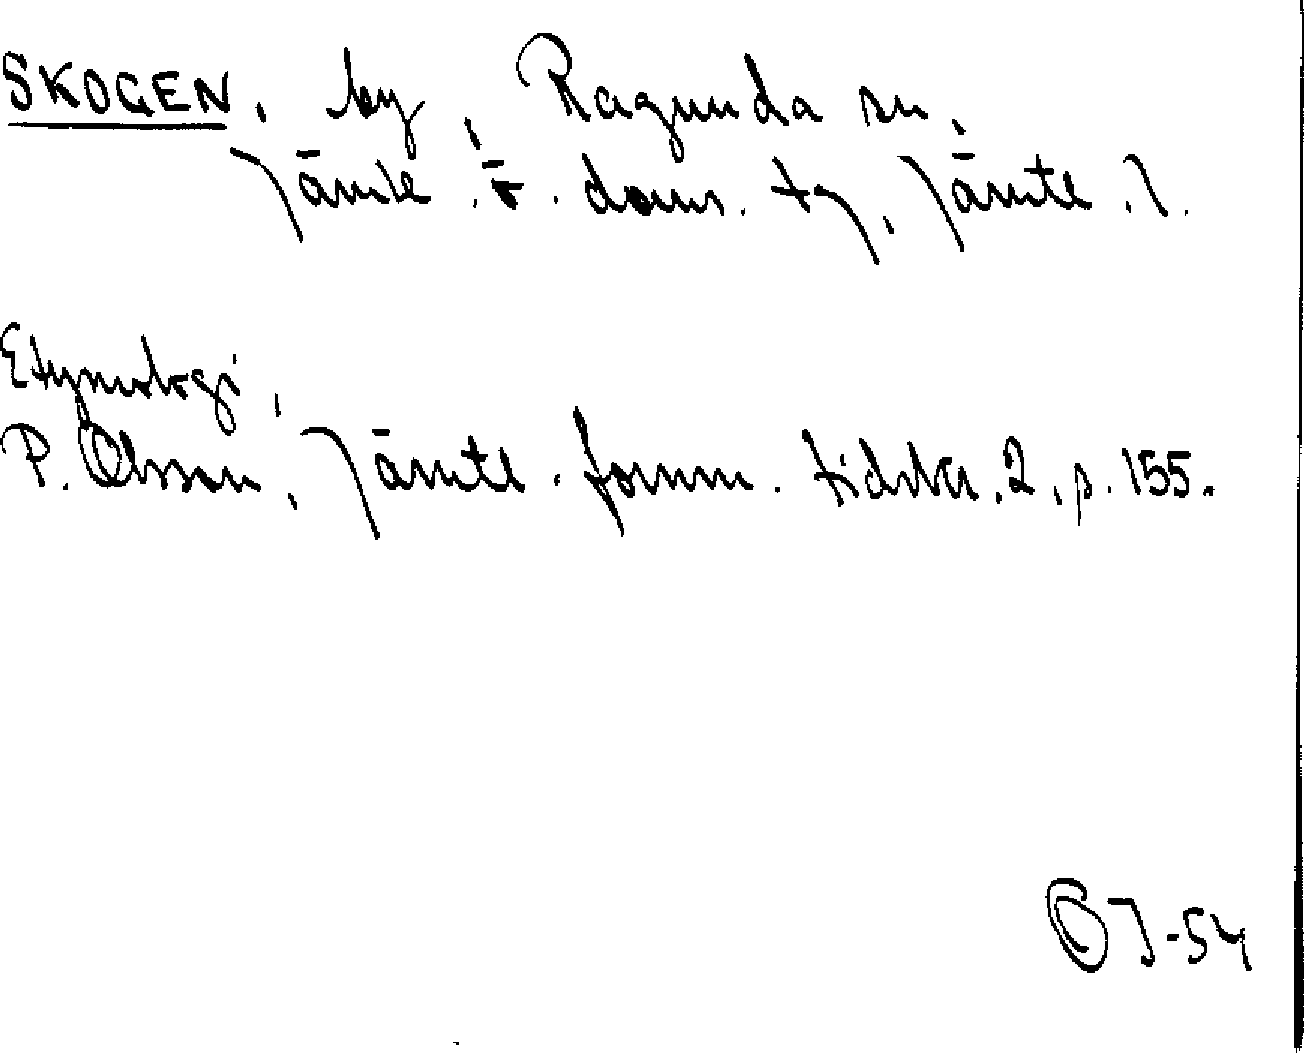 SKOGEN, by, Ragunda sn,
Jämtl. ö. doms. tg, Jämtl. l.
Etymologi,
P. Olsson, Jämtl. fornm. tidskr. 2, p. 155.
OJ-54